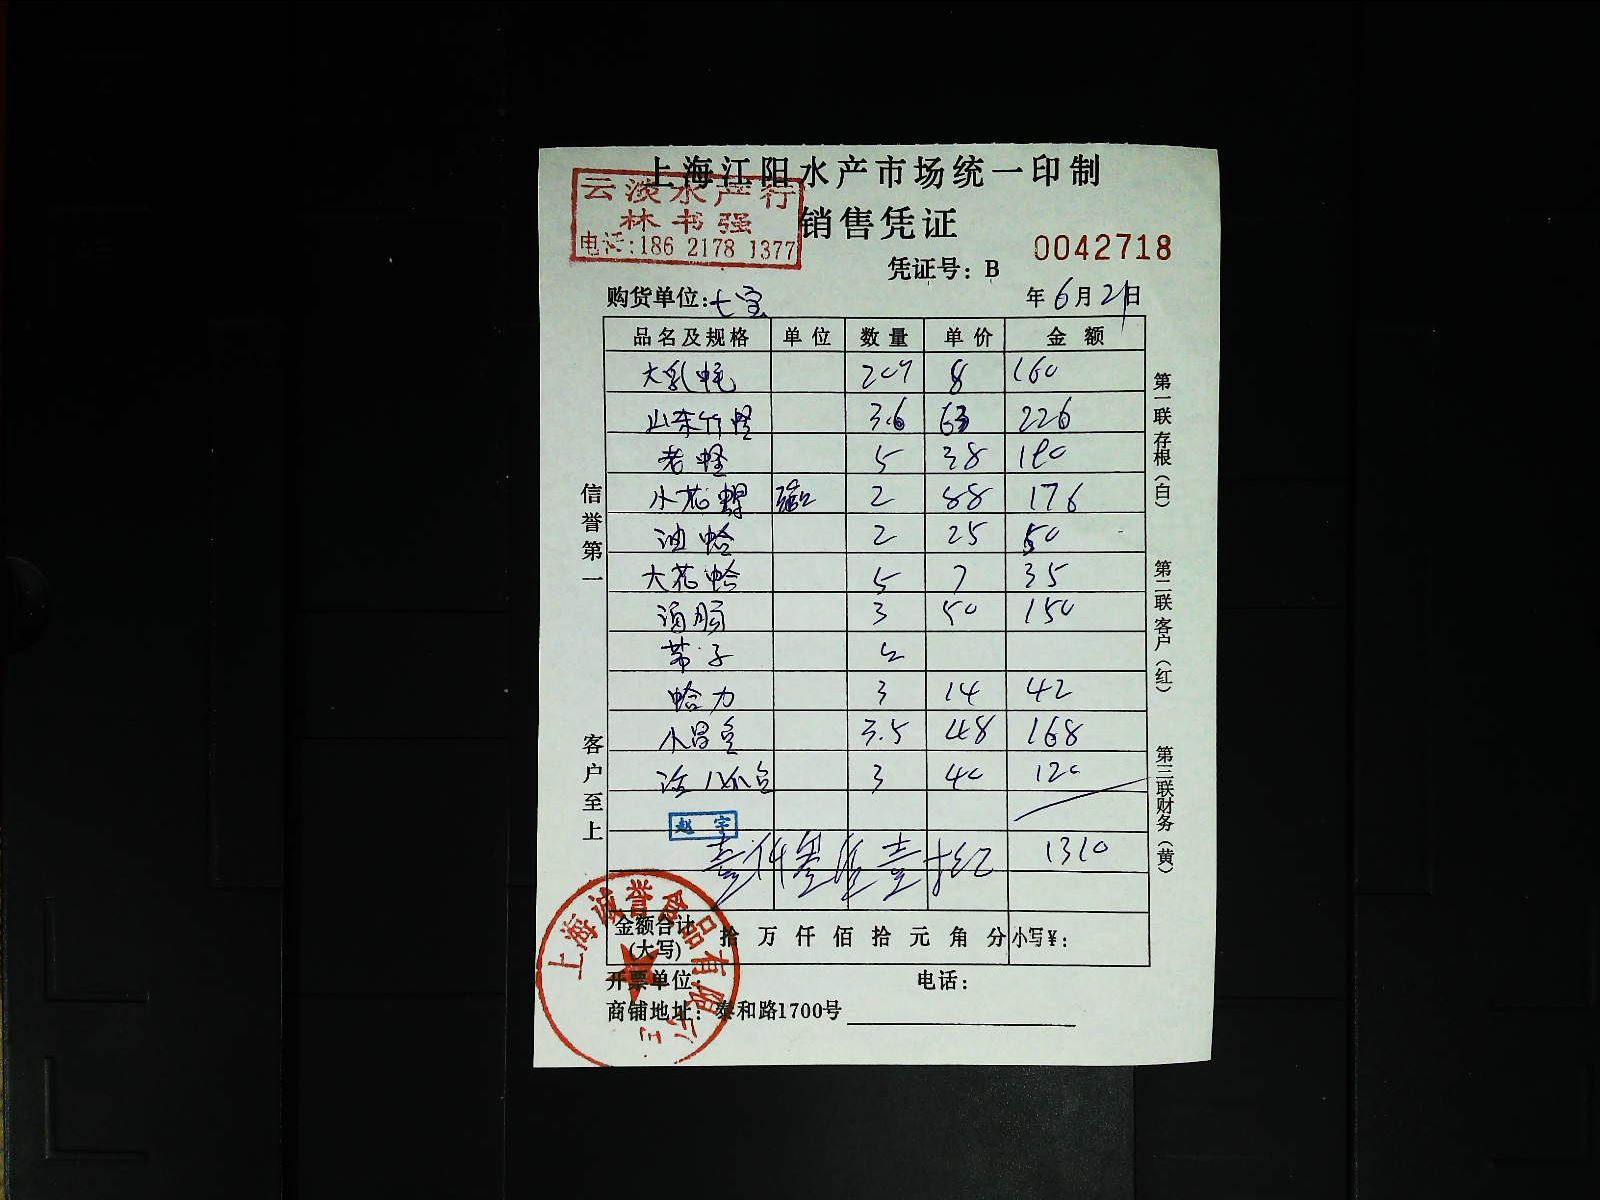 上海江阳水产市场统一印制
云淡水产行
林书强
电话:186 2178 1377
销售凭证
0042718
凭证号: B
购货单位: 七宝 年 6月 21日
品名及规格 单位 数量 单价 金额
大乳 8 160
山东竹蛏 3.6 63 226
老蛏 5 38 190
小花螺 2 88 176
油蛤 2 25 50
大花蛤 5 7 35
3 50 150
带子 2
蛤力 3 14 42
小 3.5 48 168
活八爪鱼 3 40 120
赵宇
壹仟叁佰壹拾元 1310
金额合计(大写) 拾 万 仟 佰 拾 元 角 分 小写¥:
开票单位: 电话:
商铺地址: 泰和路1700号
信誉第一
客户至上
第一联存根(白)
第二联客户(红)
第三联财务(黄)
上海诚誉食品有限公司